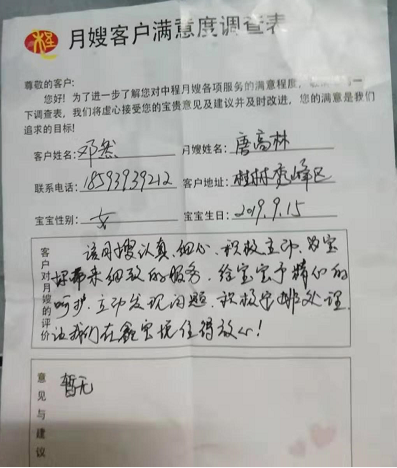 月嫂客户满意度调查表
尊敬的客户:
您好!为了进一步了解您对中程月嫂各项服务的满意程度,
下调查表,我们将虚心接受您的宝贵意见及建议并及时改进,您的满意是我们
追求的目标!
客户姓名:邓然 月嫂姓名:唐高林
联系电话:18593939212 客户地址:桂林秀峰区
宝宝性别:女 宝宝生日:2019.9.15
客户对月嫂的评价
该月嫂认真、细心、积极主动、为宝
妈带来细致的服务、给宝宝予精心的
呵护、主动发现问题、积极安排处理
让我们在住得放心!
意见与建议
暂无